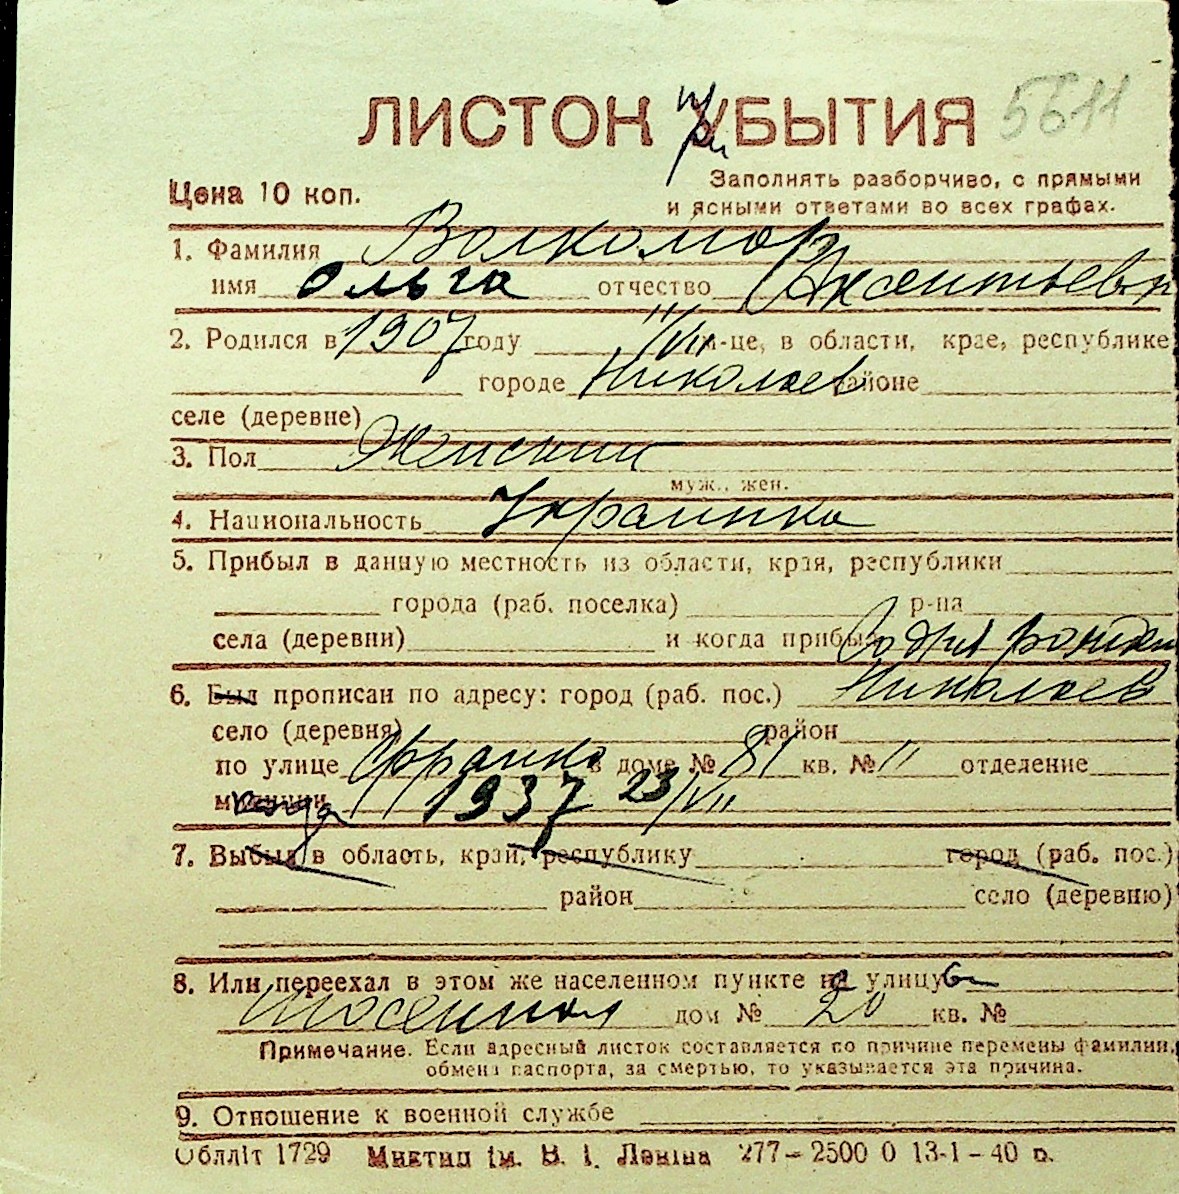 ЛИСТОК при УБЫТИЯ 5611
Цена 10 коп.
Заполнять разборчиво, с прямыми
и ясными ответами во всех графах.
1. Фамилия Волкомор
имя Ольга отчество Аксентьевн
2. Родился в 1907 году 11/VII м-це, в области, крае, республике
городе Николаев районе
селе (деревне)
3. Пол Женский
муж., жен.
4. Национальность Украинка
5. Прибыл в данную местность из области, края, республики
города (раб. поселка) р-на
села (деревни) и когда прибыл со дня рожден
6. Был прописан по адресу: город (раб. пос.) Николаев
село (деревня) район
по улице Франко в доме № 81 кв. № 11 отделение
милиции когда 1937 23/VII
7. Выбыл в область, край, республику город (раб. пос.)
район село (деревню)
8. Или переехал в этом же населенном пункте на улицу
дом № 20 кв. №
Примечание. Если адресный листок составляется по причине перемены фамилии,
обмена паспорта, за смертью, то указывается эта причина.
9. Отношение к военной службе
Облліт 1729 Миктип ім. В. І. Леніна 277–2500 0 13-1-40 р.